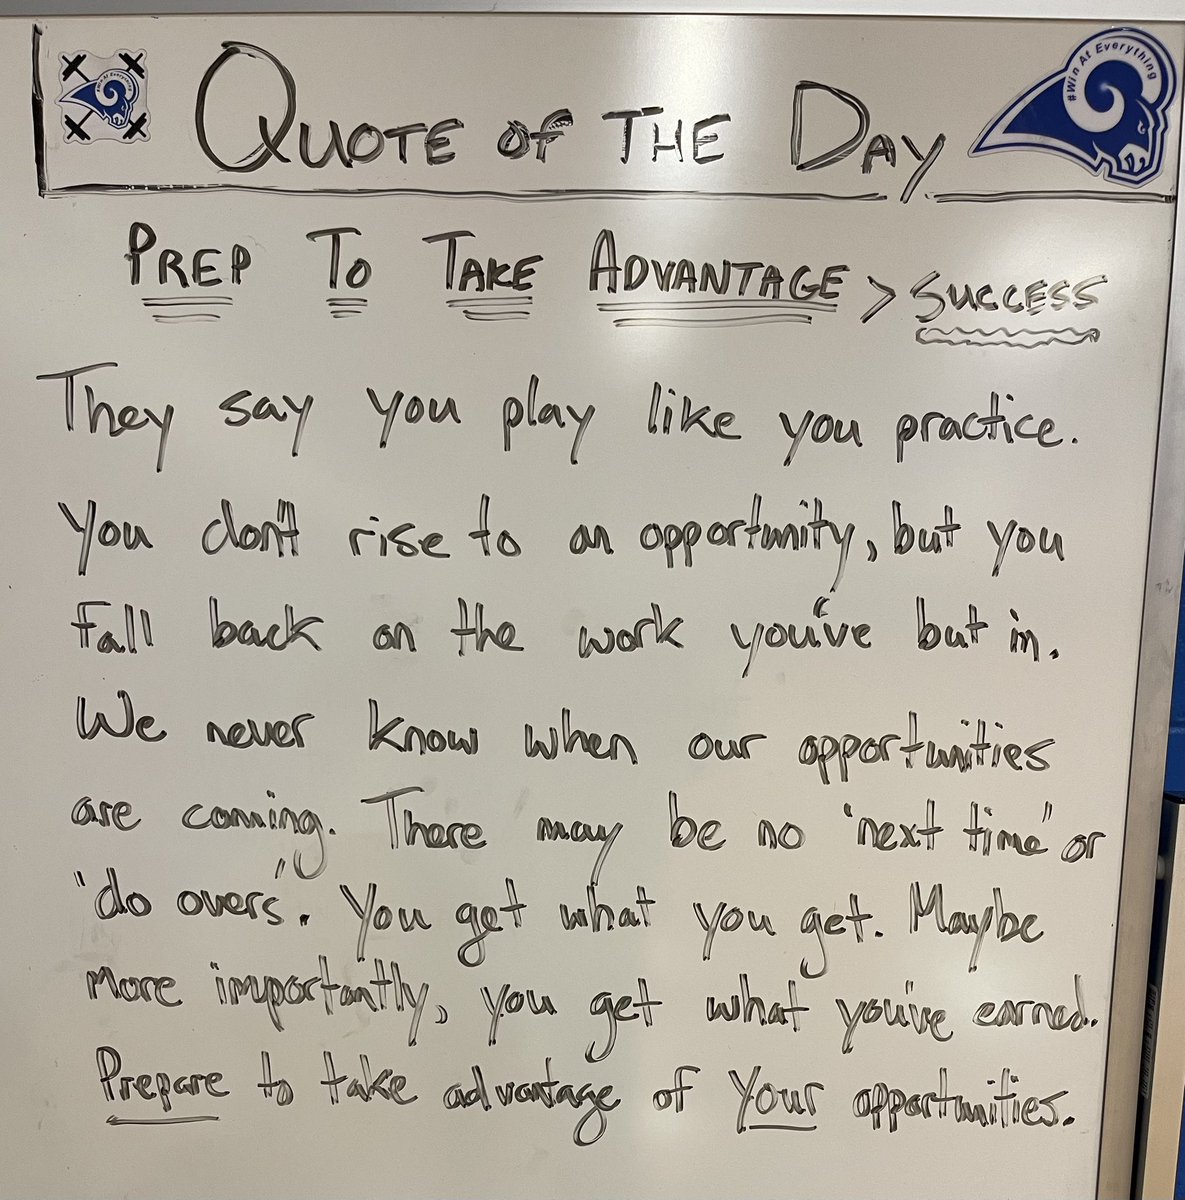 #Win At Everything
QUOTE OF THE DAY
#Win At Everything
PREP TO TAKE ADVANTAGE > SUCCESS
They say you play like you practice.
You don't rise to an opportunity, but you
fall back on the work you've but in.
We never know when our opportunities
are coming. There may be no 'next time" or
'do overs". You get what you get. Maybe
more importantly, you get what you've earned.
Prepare to take advantage of Your opportunities.